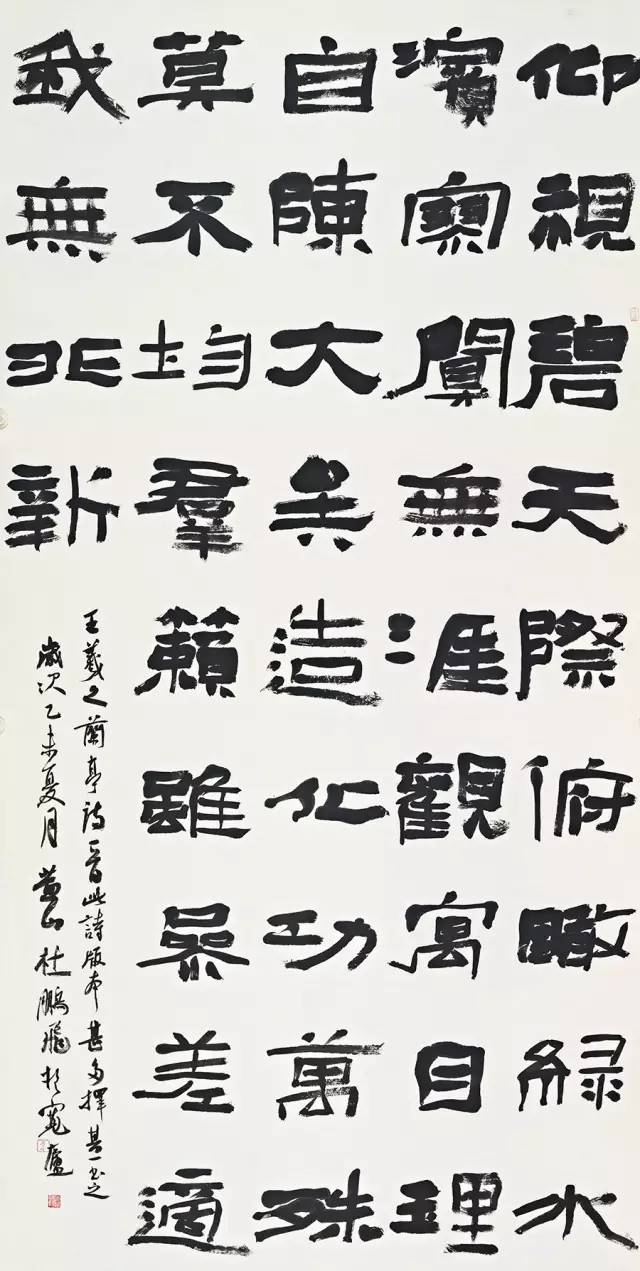 仰視碧天際俯瞰緑水
濱寥闃無涯觀寓目理
自陳大矣造化功萬殊
莫不均羣籟雖參差適
我無非新
王羲之蘭亭诗一首此詩版本甚多擇其一书之
歲次乙未夏月黄山杜鵬飛於廬